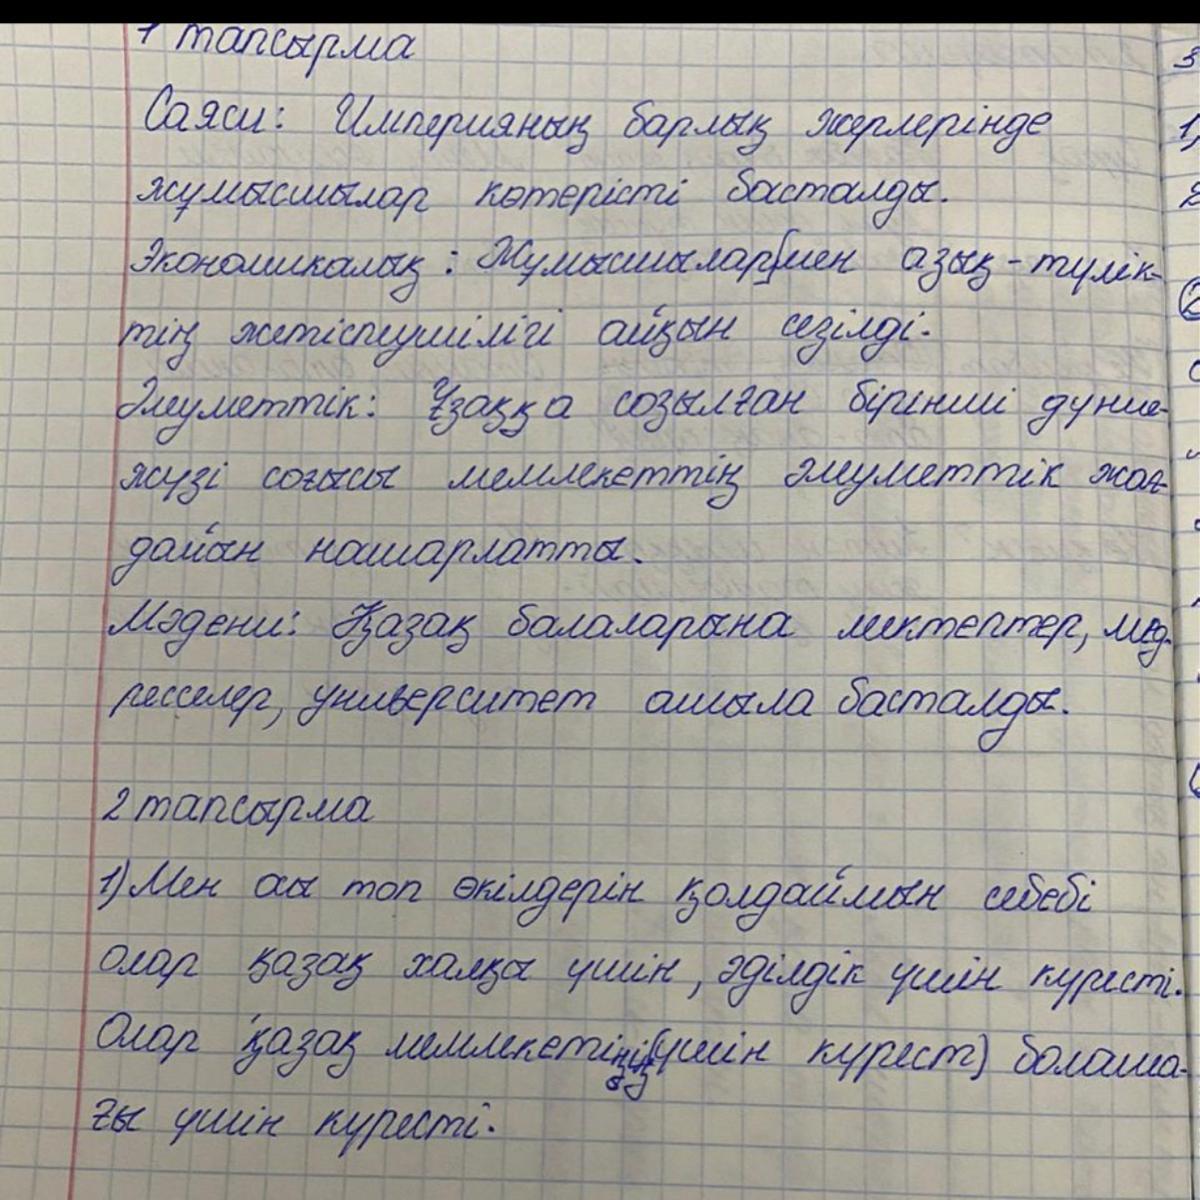 1 тапсырма
Саяси: Империяның барлық жерлерінде
жұмысшылар көтерісті басталды.
Экономикалық: Жұмысшылар[мен азық-түлік-
тің жетіспеушілігі айқын сезілді.
Әлеуметтік: Ұзаққа созылған бірінші дүние-
жүзі соғысы мемлекеттің әлеуметтік жағ-
дайын нашарлатты.
Мәдени: Қазақ балаларына мектептер, мед-
ресселер, университет ашыла басталды.
2 тапсырма
1) Мен осы топ өкілдерін қолдаймын себебі
олар қазақ халқы үшін, әділдік үшін күресті.
Олар қазақ мемлекетінің (үшін күрест) болаша-
ғы үшін күресті.